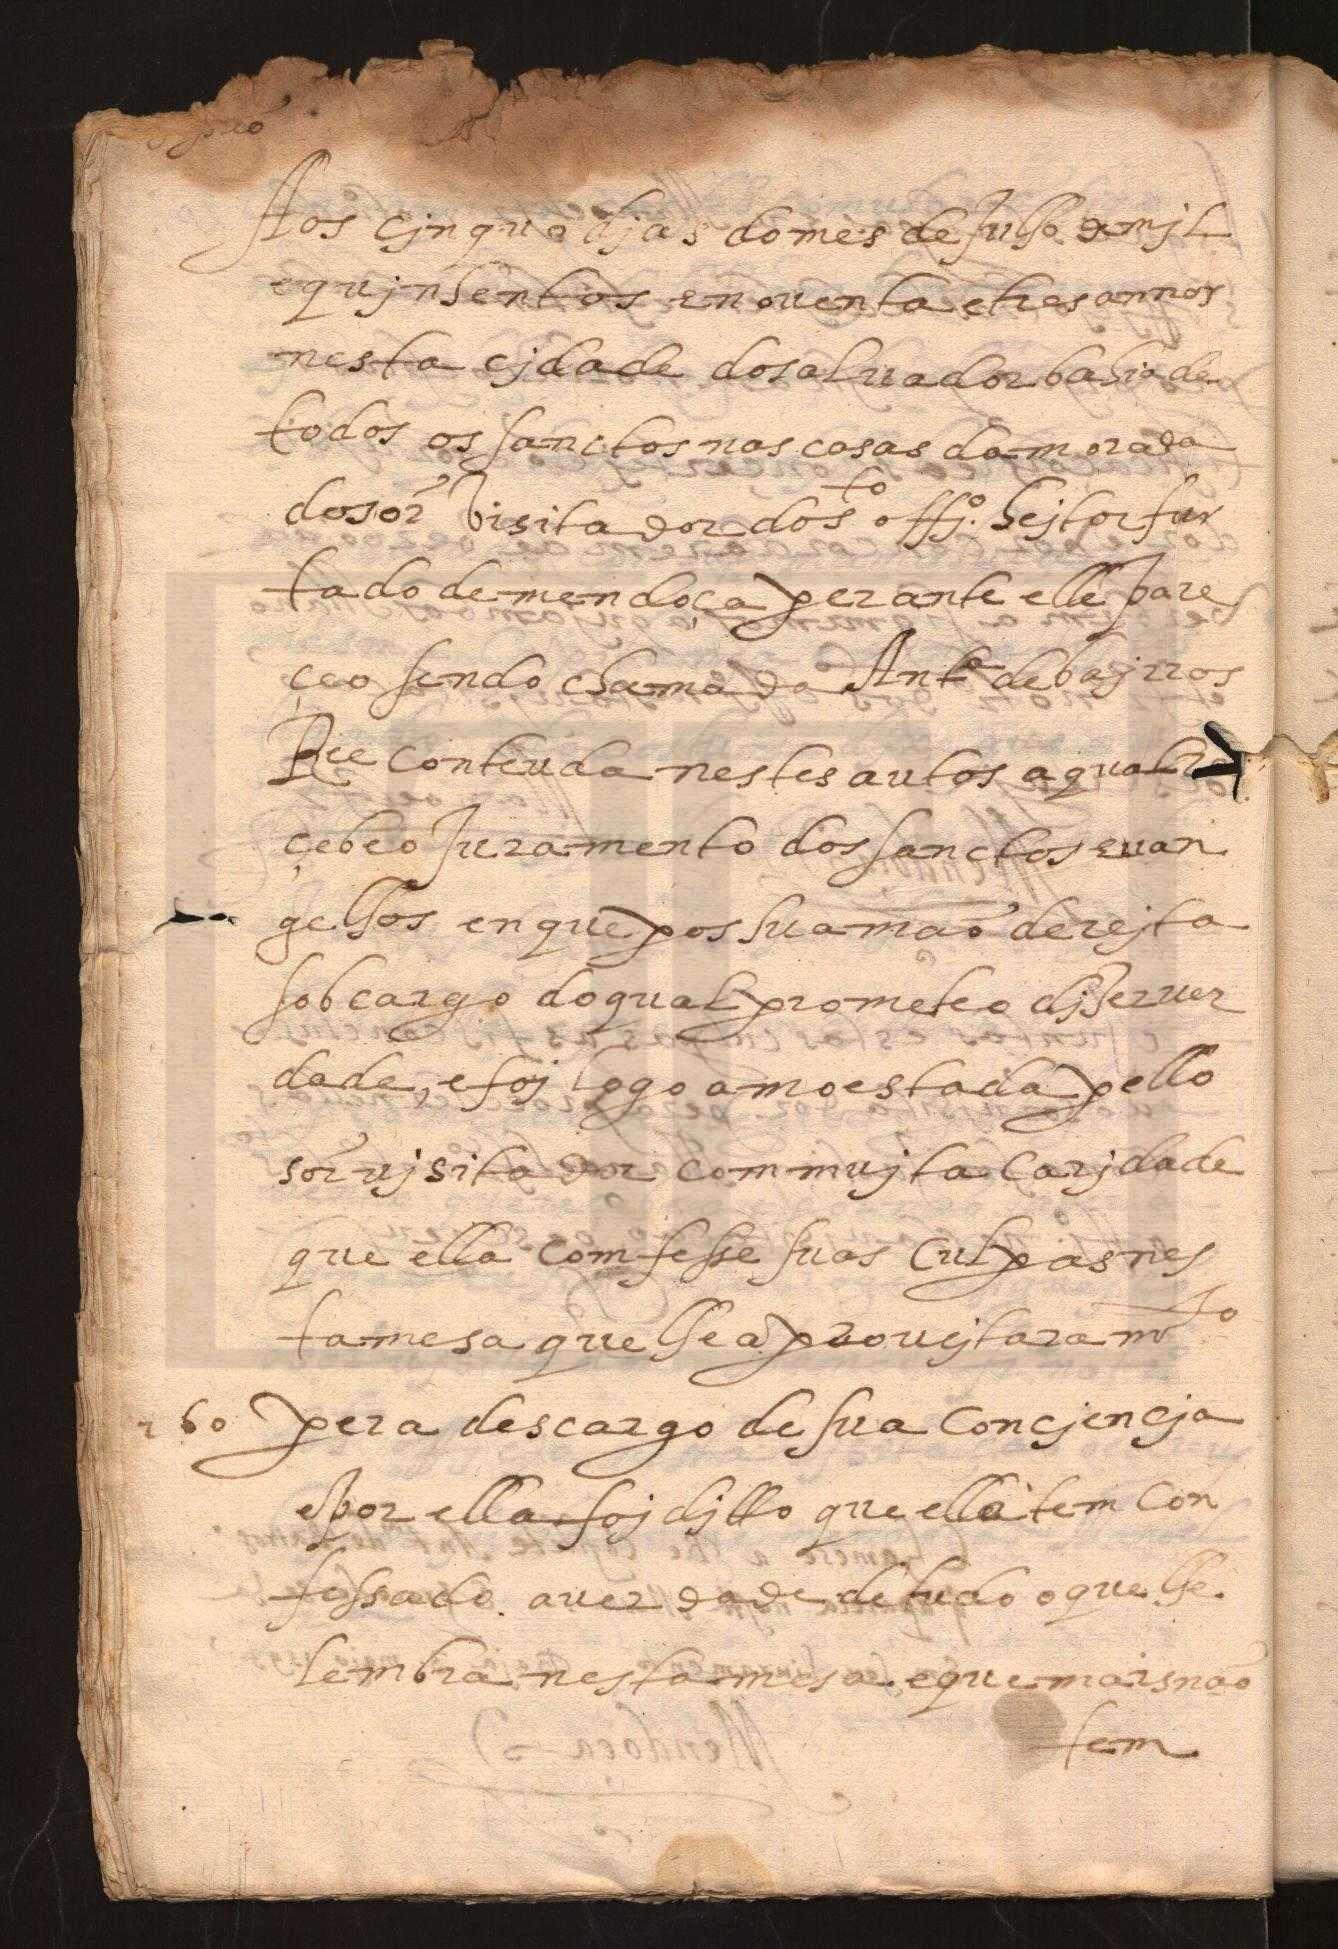 Aos cjnquo djas do mes de Julho de mjl
e qujnhentos e nouenta e tres annos
nesta cjdade do saluador bahia de
todos os sanctos nas casas da morada
do sor Visitador do sto offjo. hejtor fur
tado de mendoça perante elle pare
çeo sendo chamada Anta de bajrros
Ree conteuda nestes autos a qual re
çebeo Juramento dos sanctos euan
gelhos en que pos sua mão derejta
sob cargo do qual prometeo djzer uer
dade, e foj logo amoestada pello
sor vjsitador com mujta carjdade
que ella comfesse suas culpas nes
ta mesa que lhe aproueitara mto
pera descargo de sua concjencja
e por ella foj djtto que ella tem con
fessado a uerdade de tudo o que lhe
lembra nesta mesa e que mais não
tem